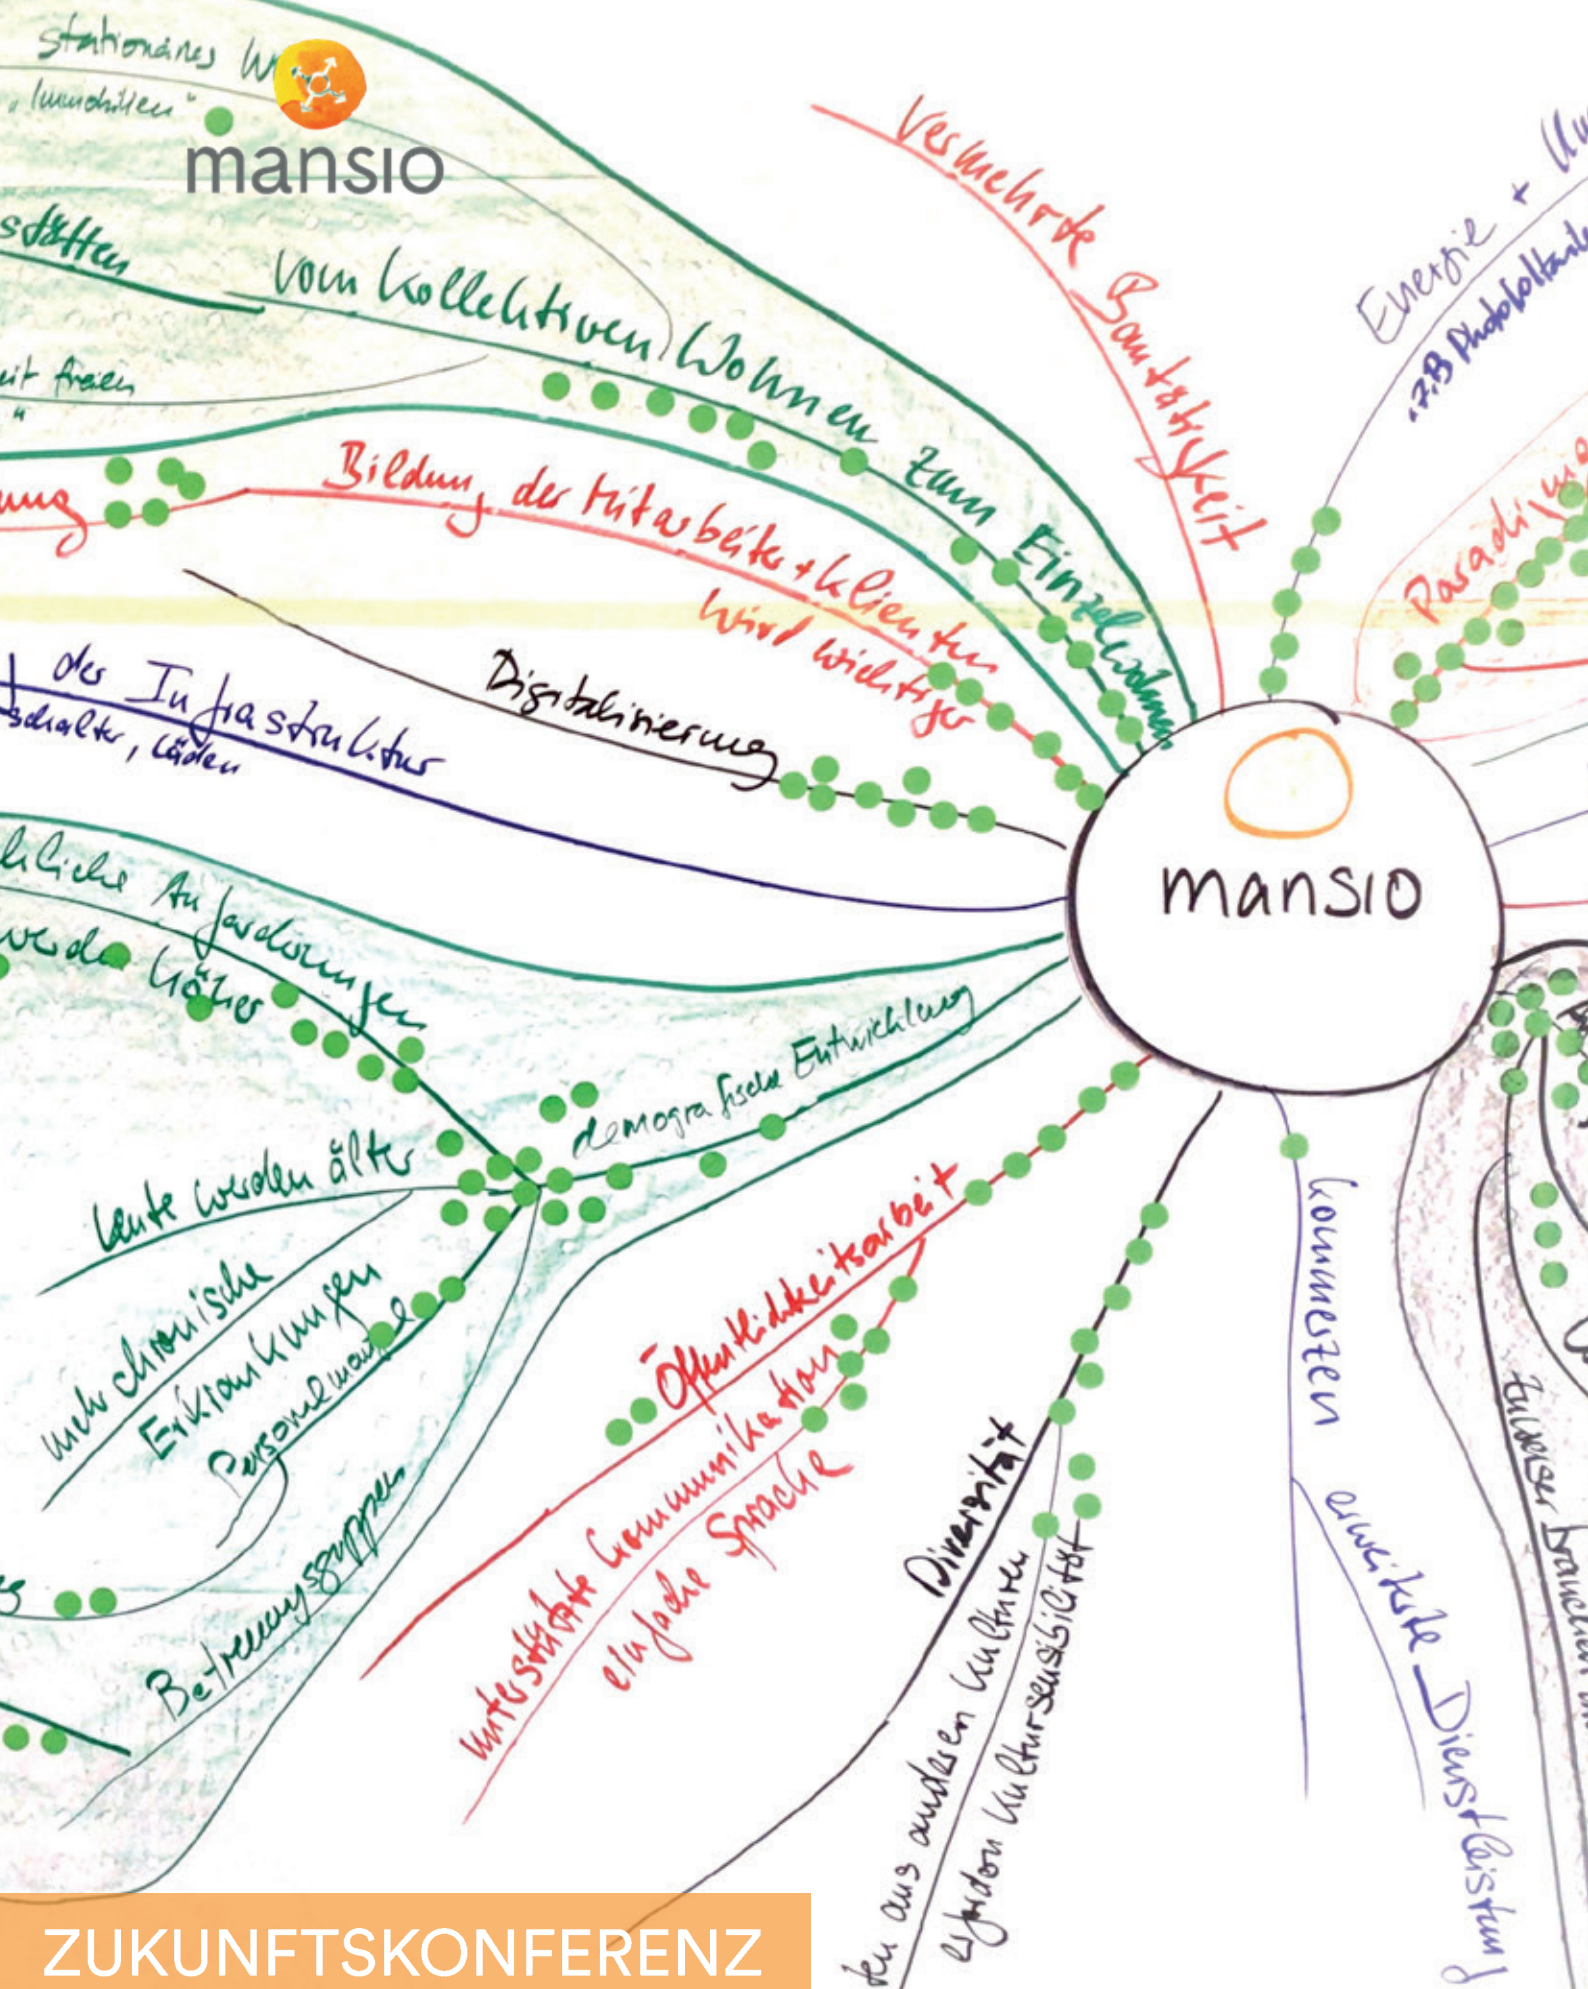 stationäres
"Immobilien"
mansio
stätten
vom kollektiven Wohnen zum Einzelwohnen
freien
Bildung der Mitarbeiter + Klienten
wird wichtiger
Digitalisierung
der Infrastruktur
schalter, Läden
Vermehrte Bautätigkeit
Energie +
z.B Photovoltaik
mansio
Anforderungen
werden höher
demografische Entwicklung
Leute werden älter
mehr chronische
Erkrankungen
Personalmangel
Betreuungsgruppen
Öffentlichkeitsarbeit
unterstützte Kommunikation
einfache Sprache
Diversität
aus anderen Kulturen
erfordern Kultursensibilität
kommerzen
erweiterte Dienstleistung
Zuweiser brauchen
ZUKUNFTSKONFERENZ